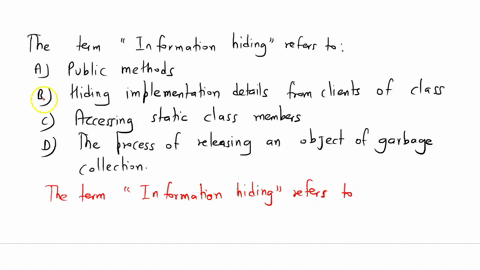 The term "Information hiding" refers to:
A) Public methods
B) Hiding implementation details from clients of class
C) Accessing static class members
D) The process of releasing an object of garbage
collection.
The term "Information hiding" refers to